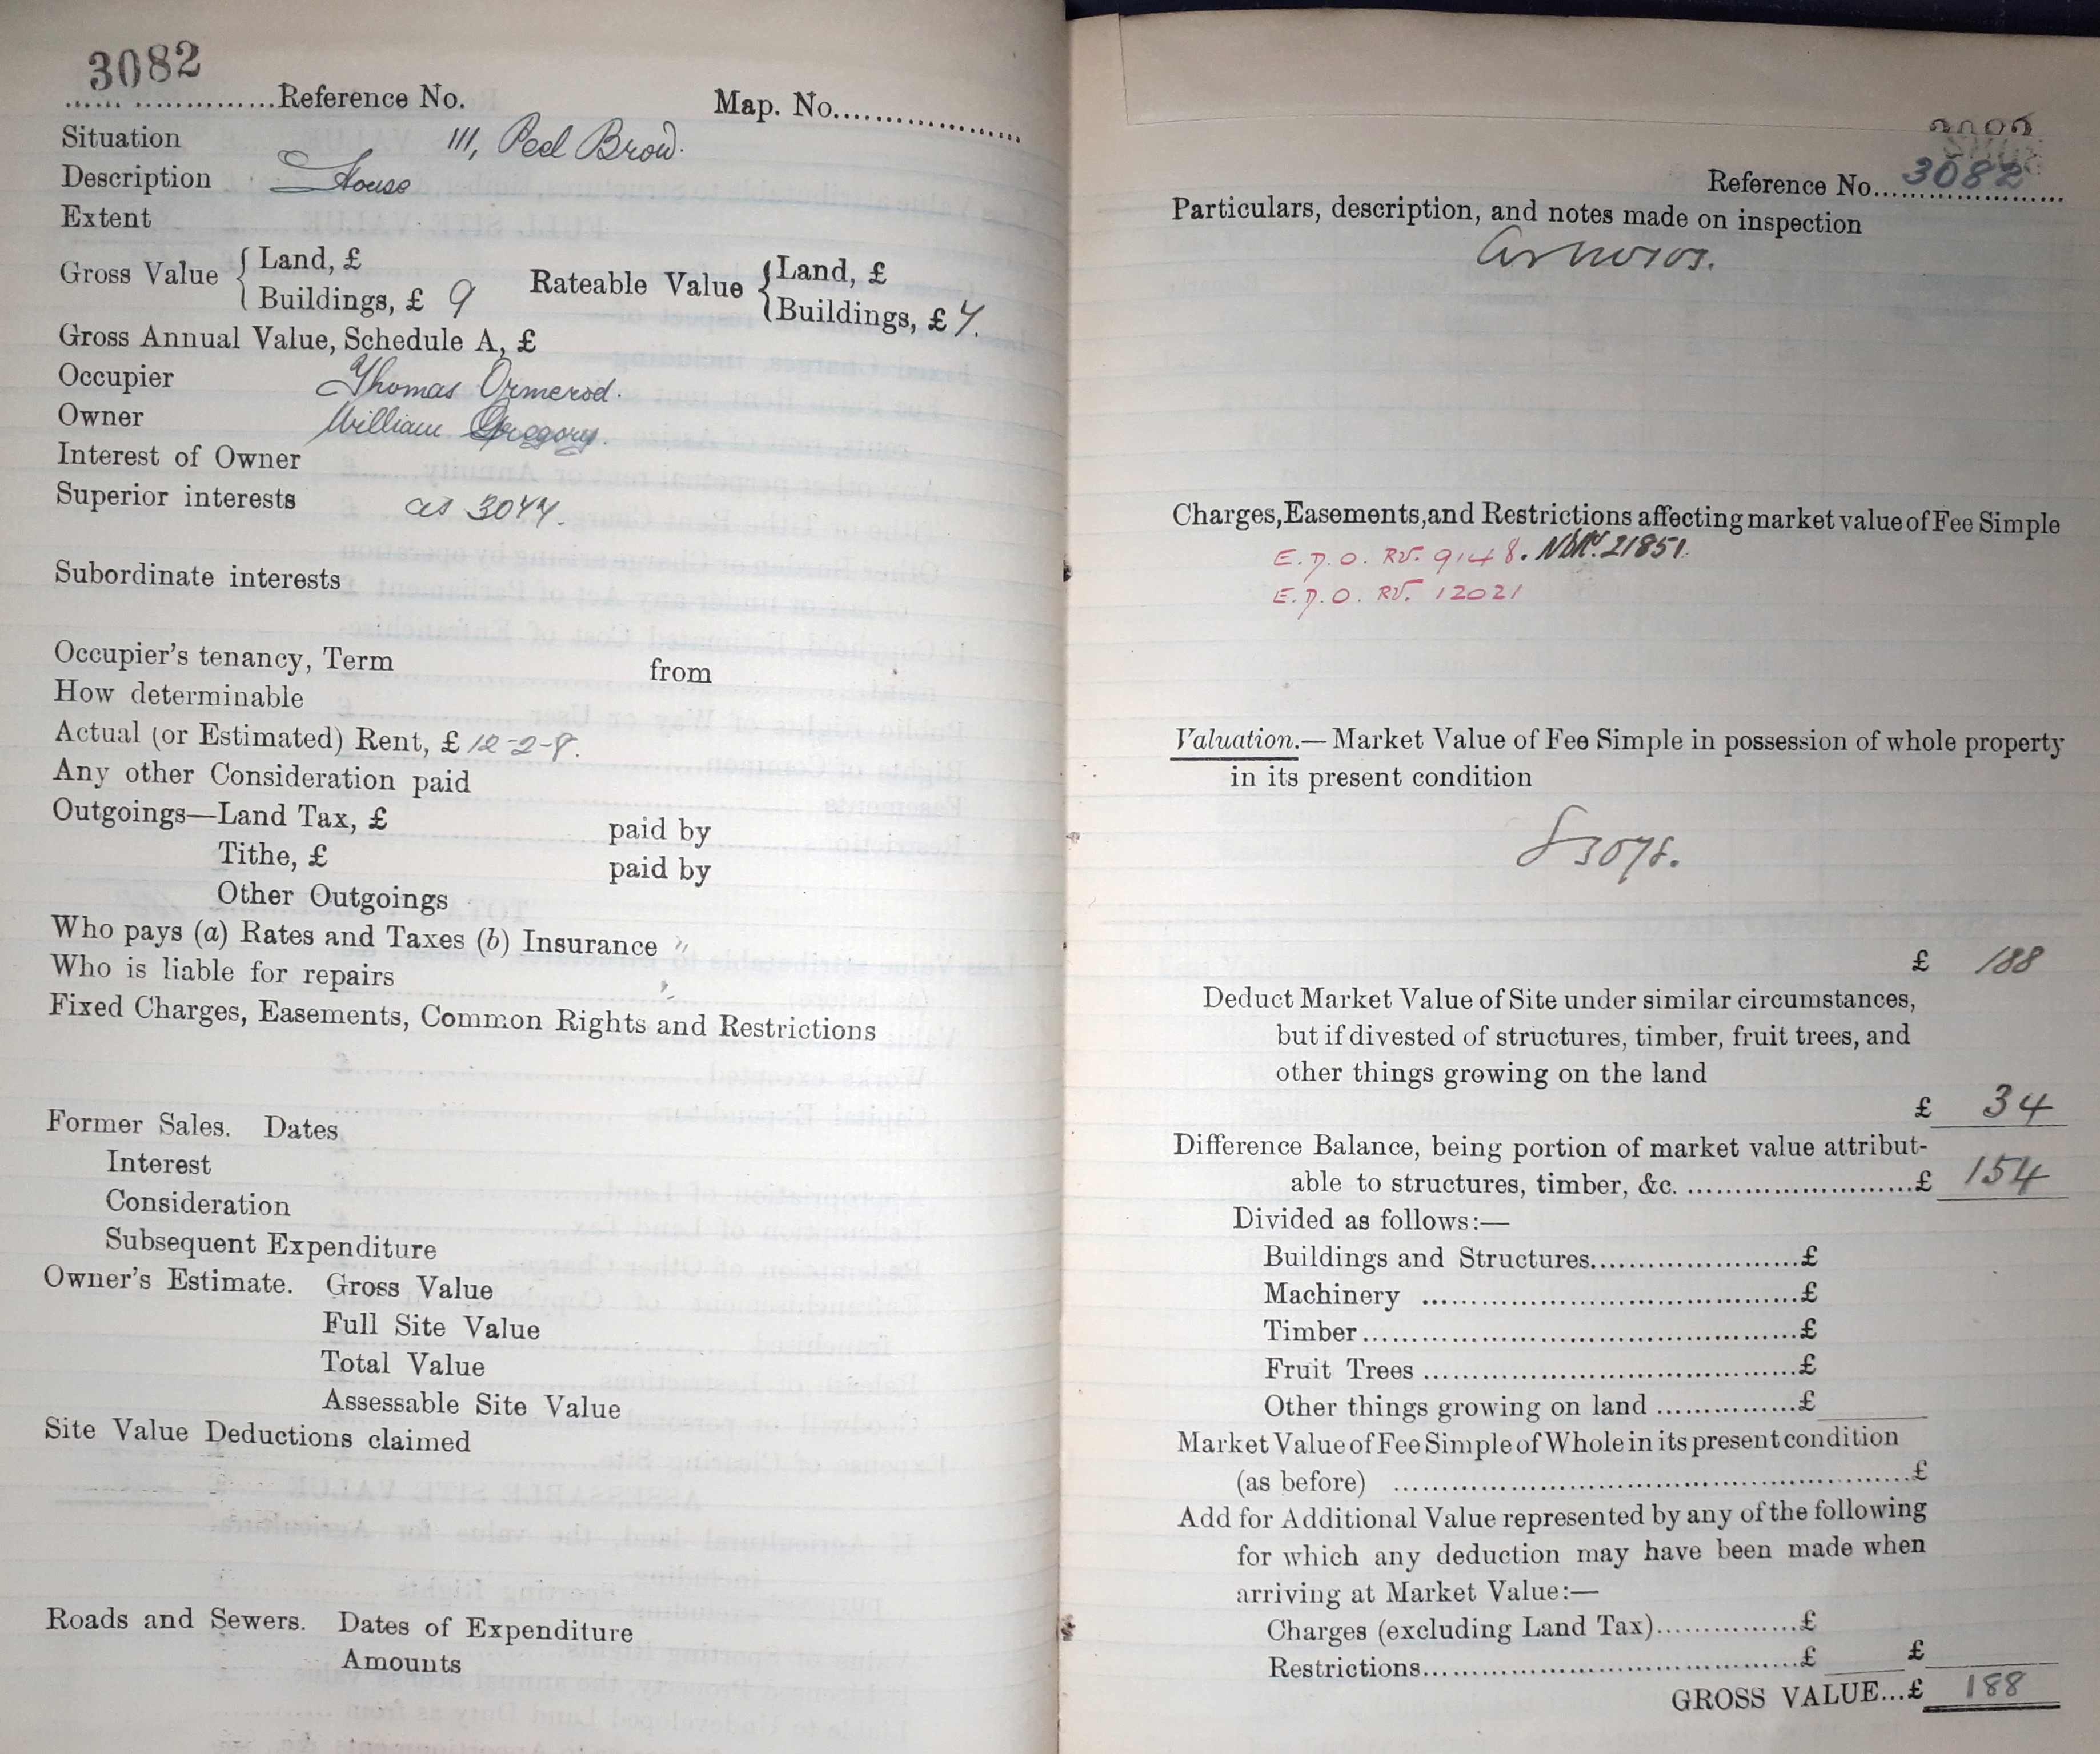 3082
Reference No. Map. No.
Situation 111, Peel Brow.
Description House
Extent
Gross Value { Land, £
Buildings, £ 9
Rateable Value { Land, £
Buildings, £ 7.
Gross Annual Value, Schedule A, £
Occupier Thomas Ormerod.
Owner William Gregory.
Interest of Owner
Superior interests as 3044.
Subordinate interests
Occupier's tenancy, Term from
How determinable
Actual (or Estimated) Rent, £ 12-2-8.
Any other Consideration paid
Outgoings—Land Tax, £ paid by
Tithe, £ paid by
Other Outgoings
Who pays (a) Rates and Taxes (b) Insurance
Who is liable for repairs
Fixed Charges, Easements, Common Rights and Restrictions
Former Sales. Dates
Interest
Consideration
Subsequent Expenditure
Owner's Estimate. Gross Value
Full Site Value
Total Value
Assessable Site Value
Site Value Deductions claimed
Roads and Sewers. Dates of Expenditure
Amounts
Reference No. 3082
Particulars, description, and notes made on inspection
Charges, Easements, and Restrictions affecting market value of Fee Simple
E.D.O. RV. 9148. 21851.
E.D.O. RV. 12021
Valuation.—Market Value of Fee Simple in possession of whole property
in its present condition
£ 188
Deduct Market Value of Site under similar circumstances,
but if divested of structures, timber, fruit trees, and
other things growing on the land
£ 34
Difference Balance, being portion of market value attribut-
able to structures, timber, &c. £ 154
Divided as follows:—
Buildings and Structures £
Machinery £
Timber £
Fruit Trees £
Other things growing on land £
Market Value of Fee Simple of Whole in its present condition
(as before) £
Add for Additional Value represented by any of the following
for which any deduction may have been made when
arriving at Market Value:—
Charges (excluding Land Tax) £
Restrictions £ £
GROSS VALUE...£ 188